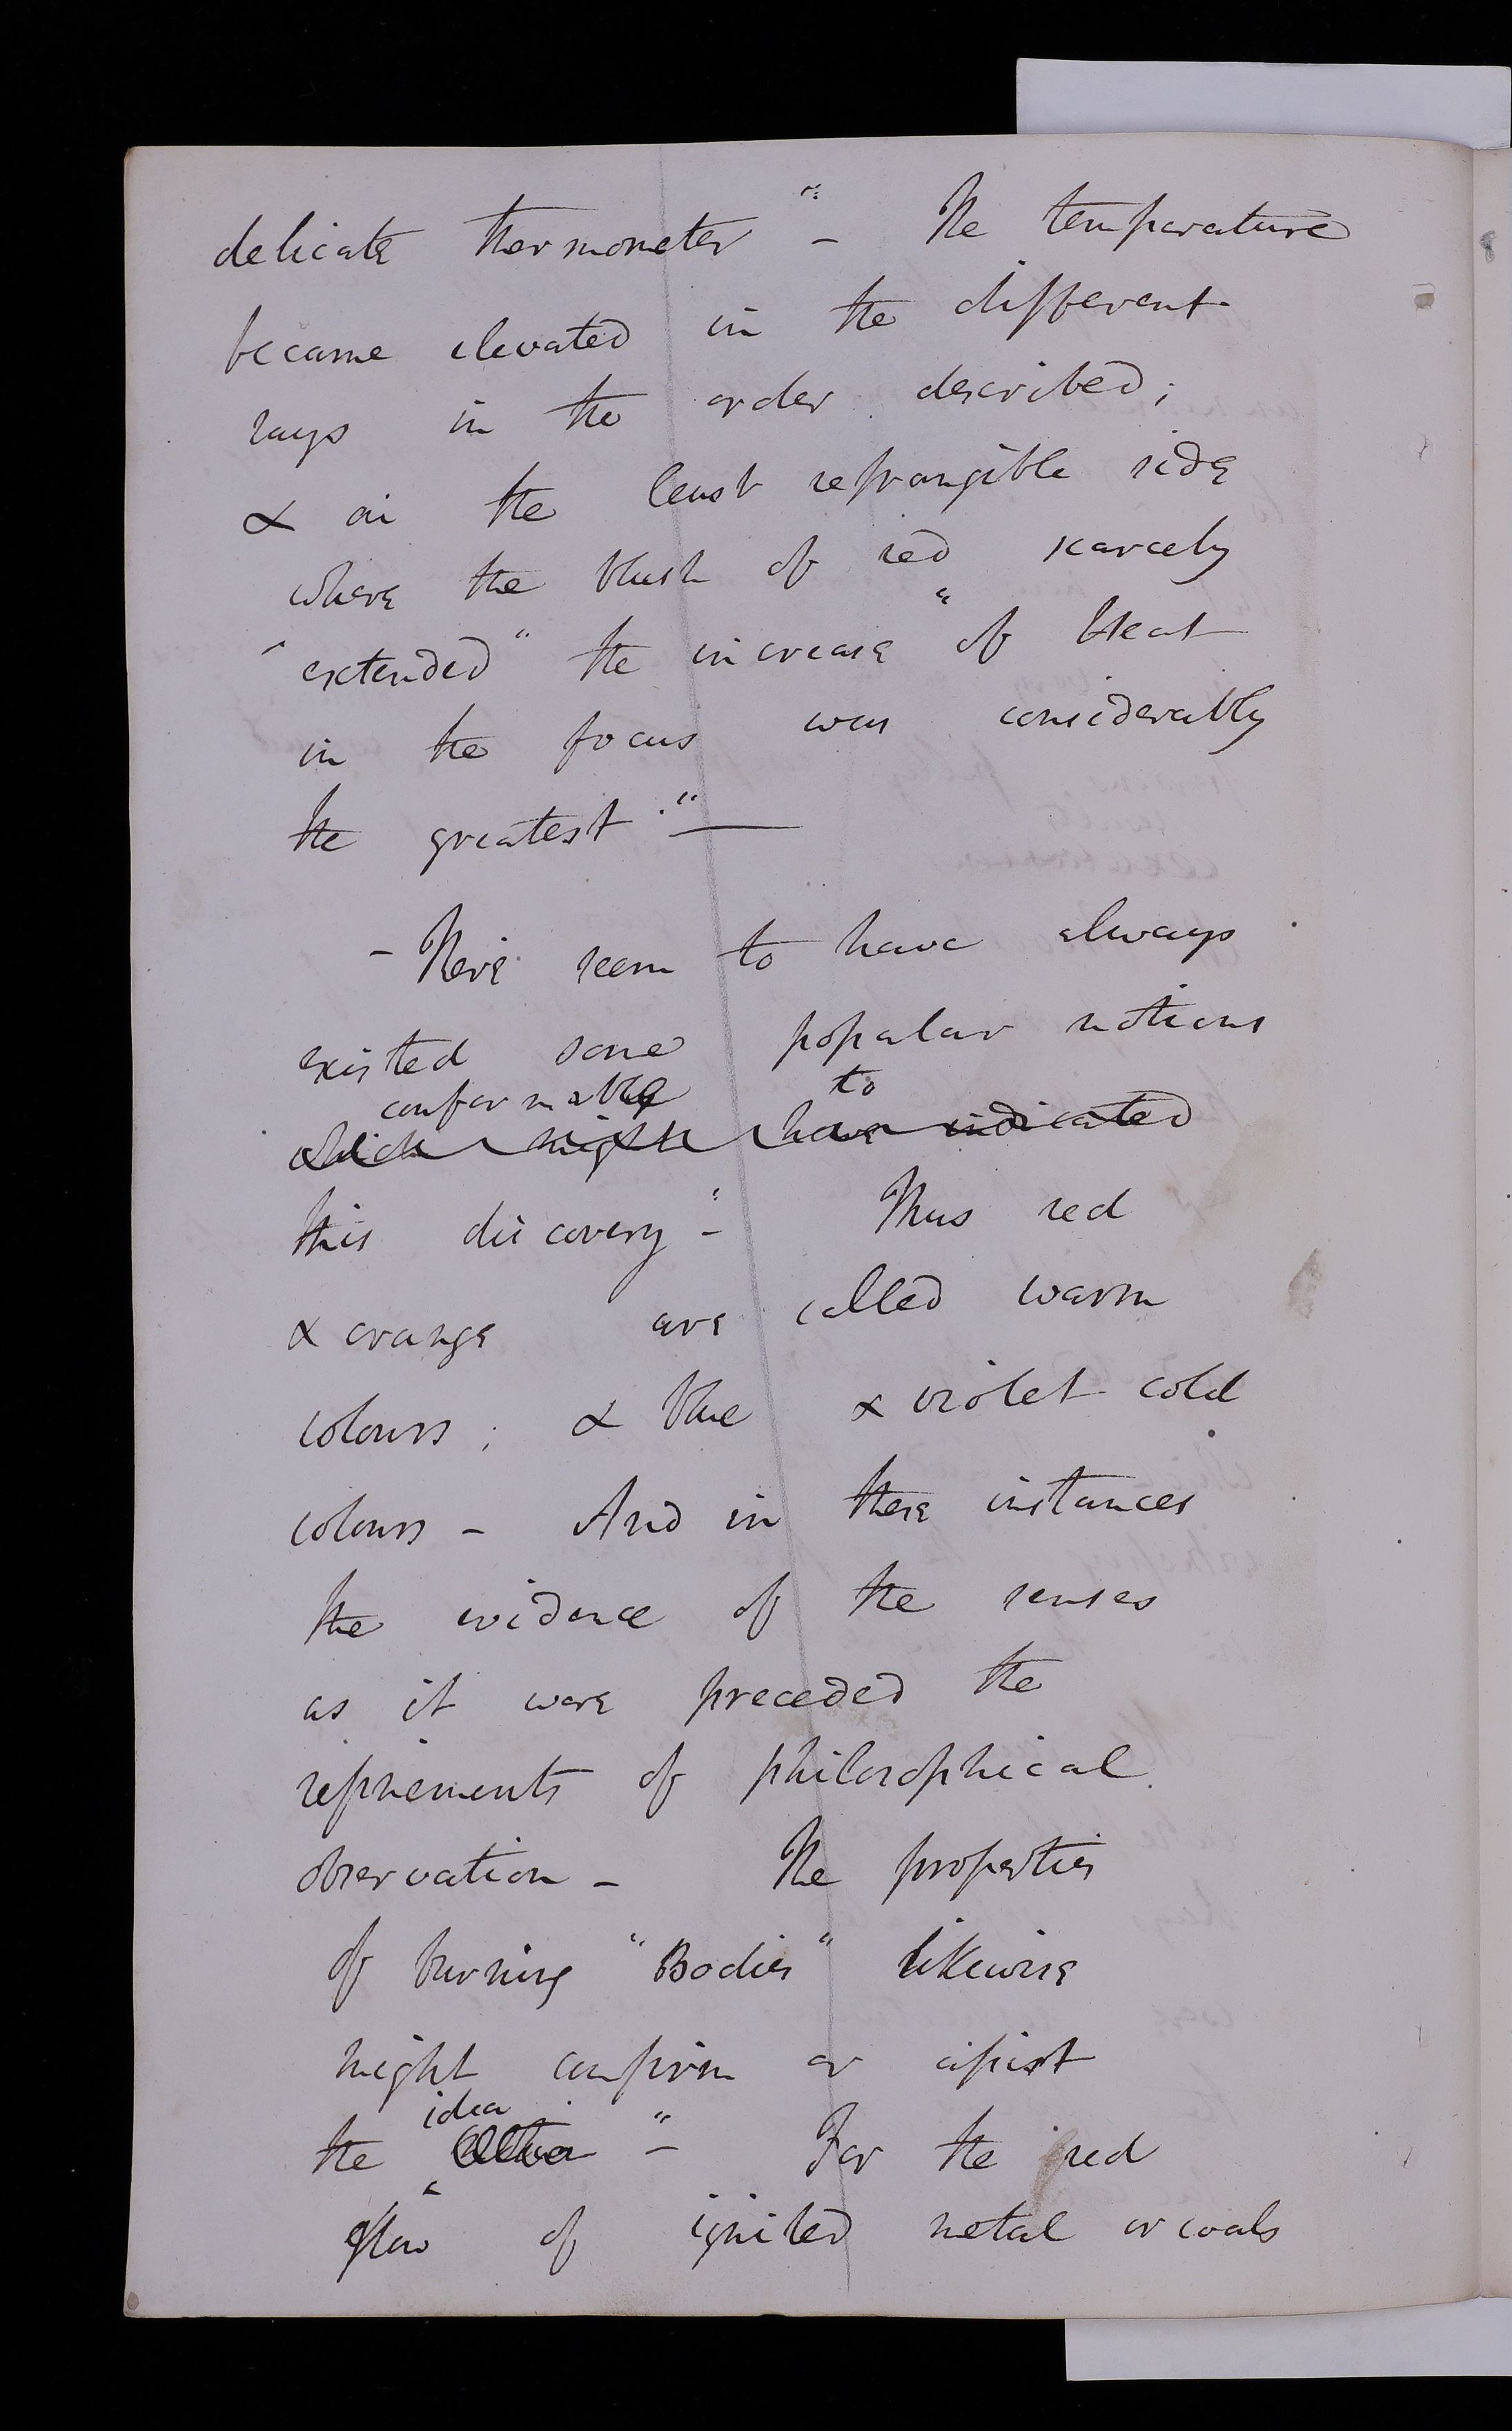 delicate thermometer" - The temperature
became elevated in the different
rays in the order described;
& on the least refrangible side
where the blush of red scarcely
"extended" the increase "of Heat
in the focus was considerably
the greatest." —
- There seem to have always
existed some popular notions
conformable to
which might have indicated
this discovery" - Thus red
& orange are called warm
colours; & blue & violet cold
colours - And in these instances
the evidence of the senses
as it were preceded the
refinements of philosophical
observation - The properties
of burning "Bodies" likewise
might confirm or assist
idea
the " - For the red
glow of ignited metal or coals
8